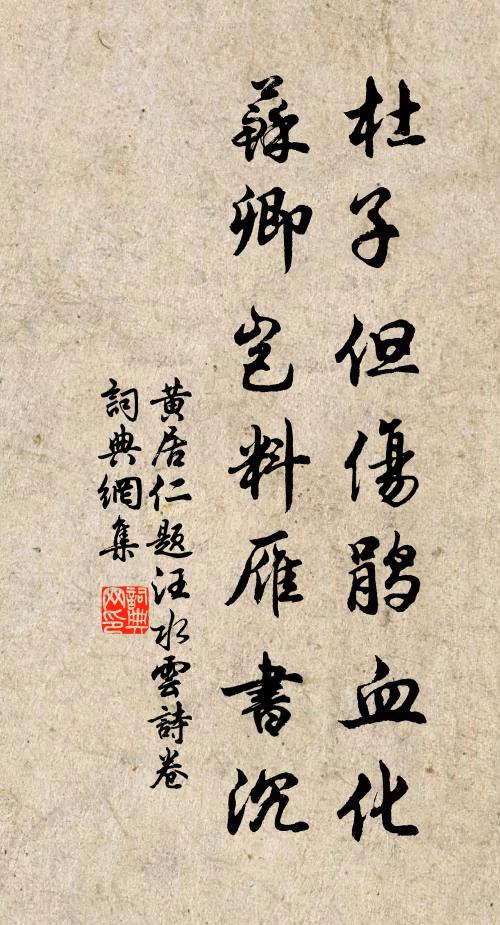 杜子但傷鵑血化
蘇卿岂料雁書沉
黄居仁題汪水雲詩卷
詞典網集
詞典
网印